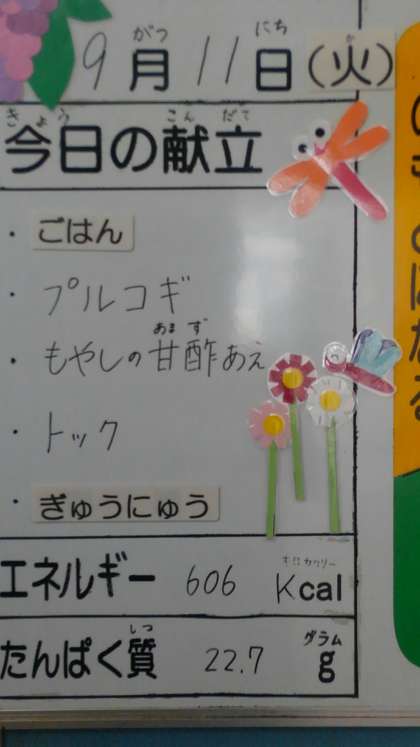 9月11日(火)
がつ にち か
今日の献立
きょう こんだて
・ごはん
・プルコギ
・もやしの甘酢あえ
あまず
・トック
・ぎゅうにゅう
エネルギー 606 Kcal
キロカロリー
たんぱく質 22.7 g
しつ グラム